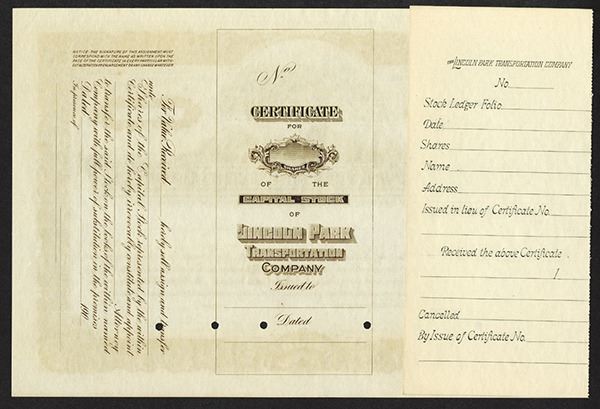 NOTICE: THE SIGNATURE OF THIS ASSIGNMENT MUST
CORRESPOND WITH THE NAME AS WRITTEN UPON THE
FACE OF THE CERTIFICATE IN EVERY PARTICULAR WITH-
OUT ALTERATION OR ENLARGEMENT OR ANY CHANGE WHATEVER
For Value Received hereby sell, assign and transfer
unto
Shares of the Capital Stock represented by the within
Certificate and do hereby irrevocably constitute and appoint
Attorney
to transfer the said Stock on the books of the within named
Company with full power of substitution in the premises.
Dated 190
In presence of
No
CERTIFICATE
FOR
SHARES
OF THE
CAPITAL STOCK
OF
LINCOLN PARK
TRANSPORTATION
COMPANY
Issued to
Dated
THE LINCOLN PARK TRANSPORTATION COMPANY
No.
Stock Ledger Folio
Date
Shares
Name
Address
Issued in lieu of Certificate No.
Received the above Certificate
1
Cancelled
By Issue of Certificate No.